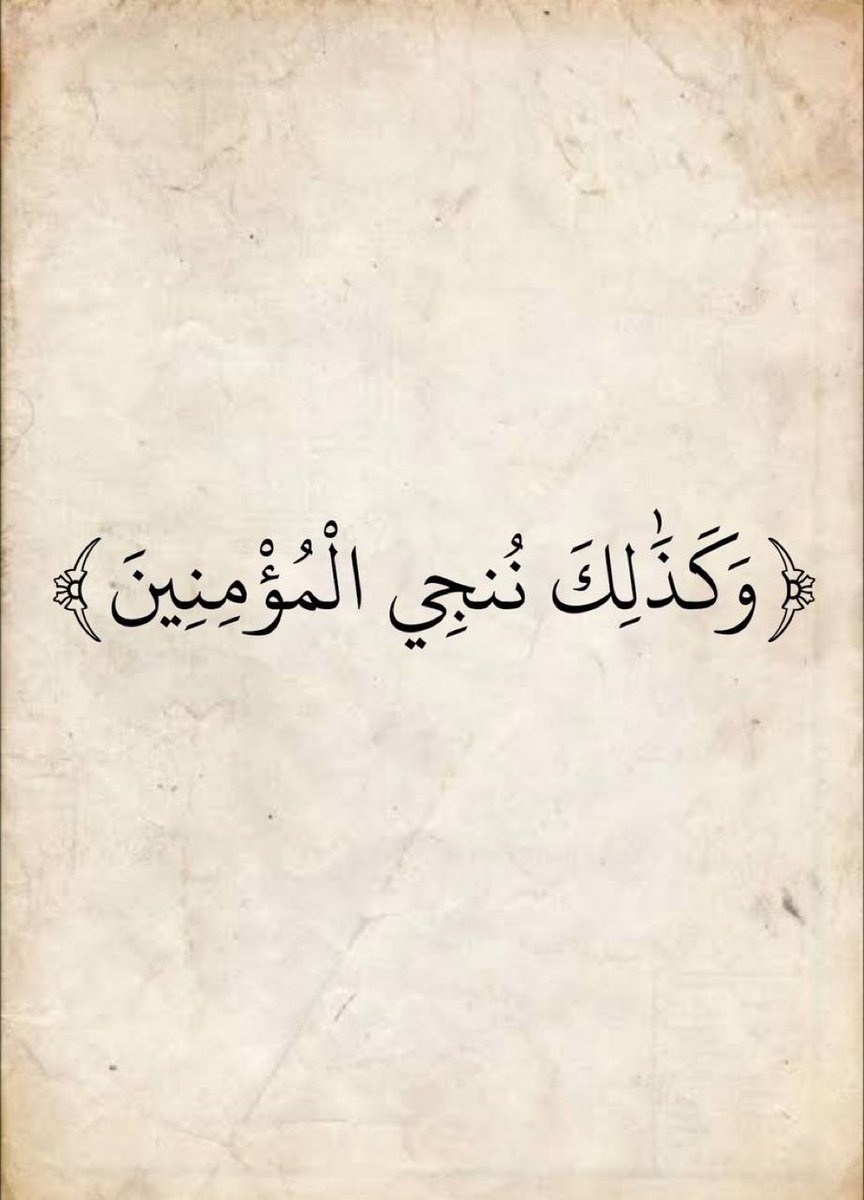 ﴿وَكَذَٰلِكَ نُنجِي الْمُؤْمِنِينَ﴾